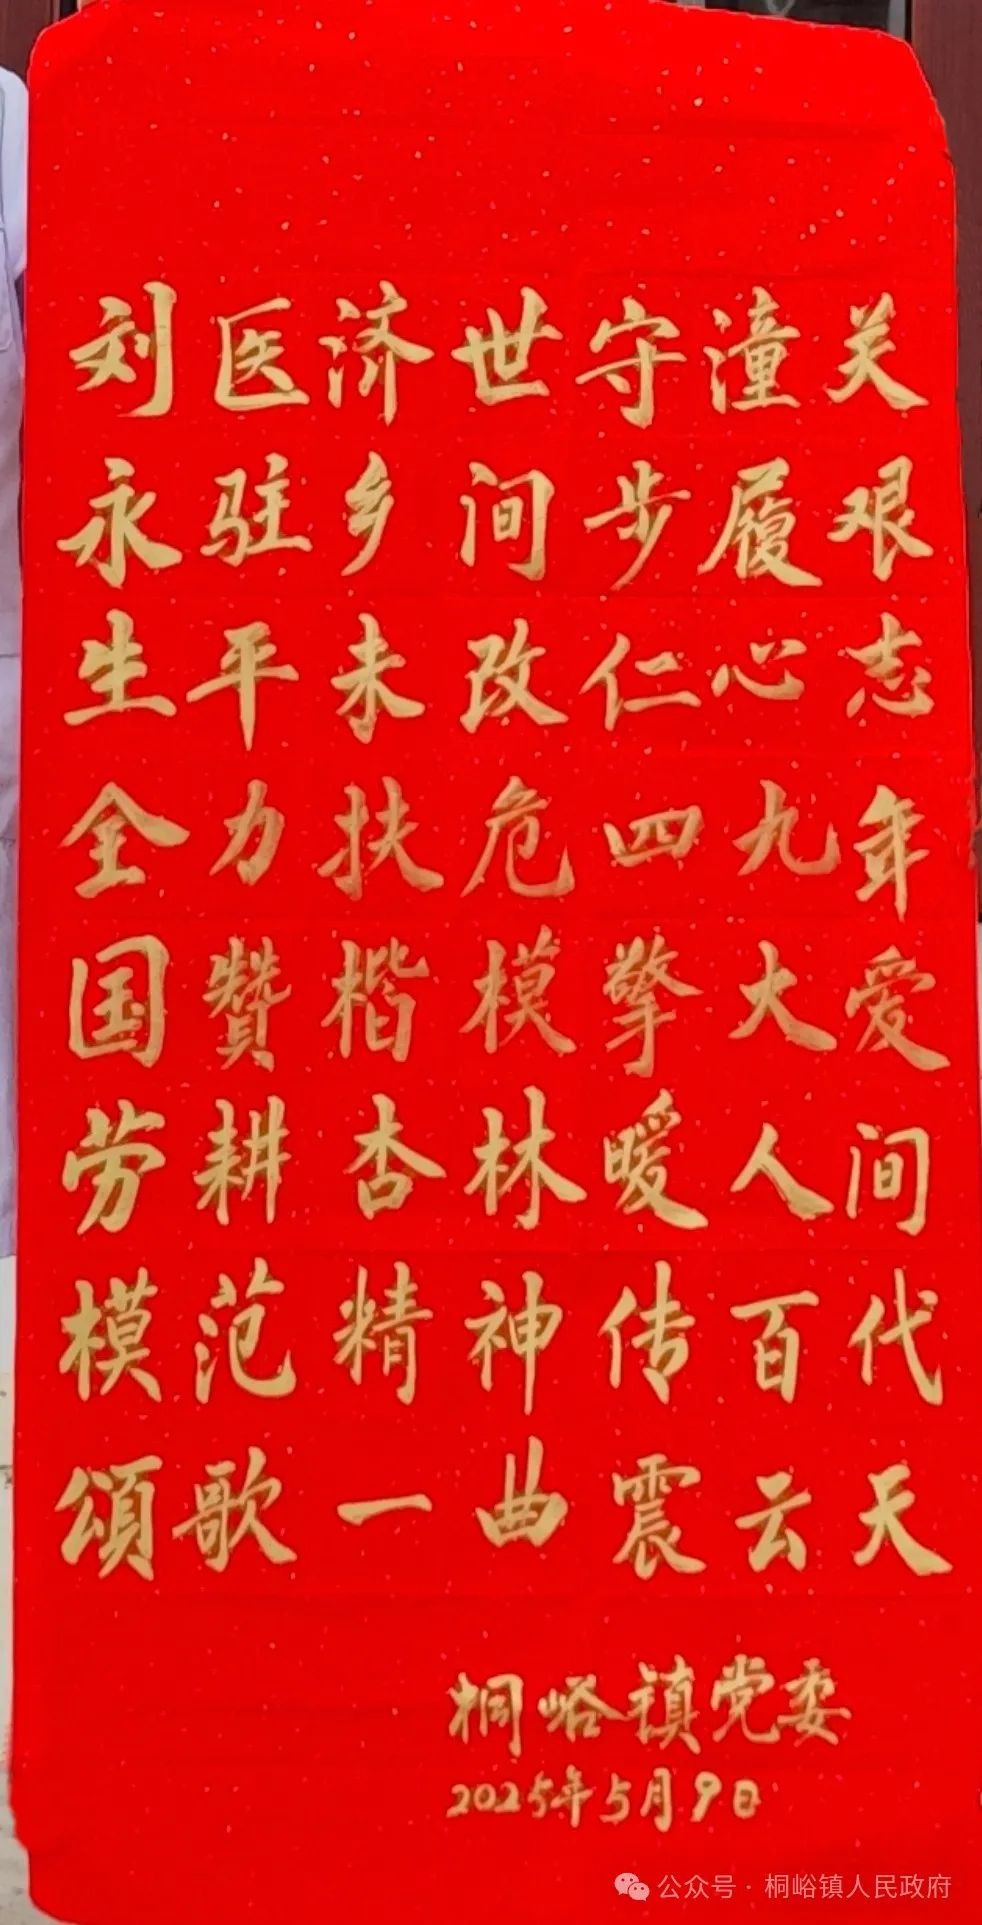 刘医济世守潼关
永驻乡间步履艰
生平未改仁心志
全力扶危四九年
国赞楷模擎大爱
劳耕杏林暖人间
模范精神传百代
頌歌一曲震云天
桐峪镇党委
2025年5月9日
公众号·桐峪镇人民政府